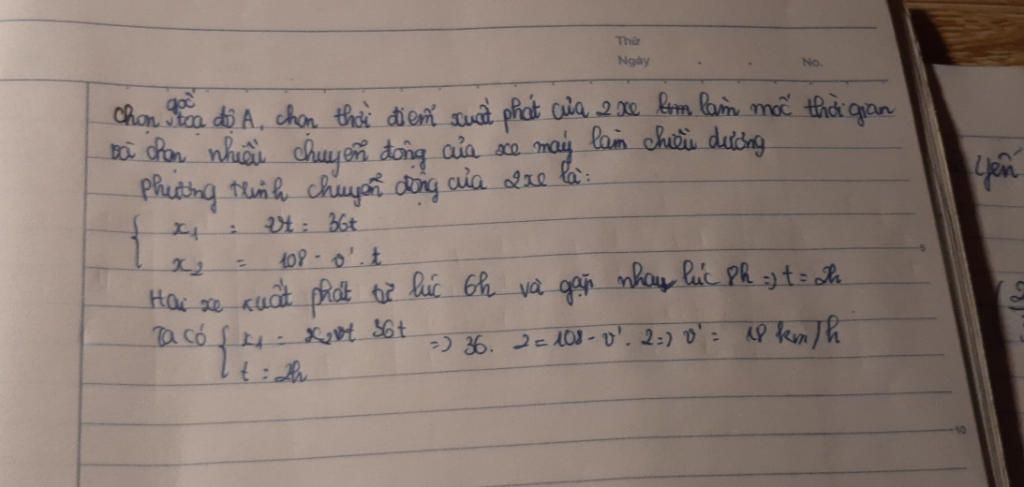 Thứ
Ngày . . No.
gốc
Chọn toạ độ A, chọn thời điểm xuất phát của 2 xe km làm mốc thời gian
và chọn nhiều chuyển động của xe máy làm chiều dương
Phương trình chuyển động của 2 xe là:
x₁ = vt = 36t
x₂ = 108 - v'.t
Hai xe xuất phát từ lúc 6h và gặp nhau lúc 8h => t = 2h
Ta có { x₁ = x₂ 36t => 36. 2 = 108 - v'. 2 => v' = 18 km/h
t = 2h
yến
5
10